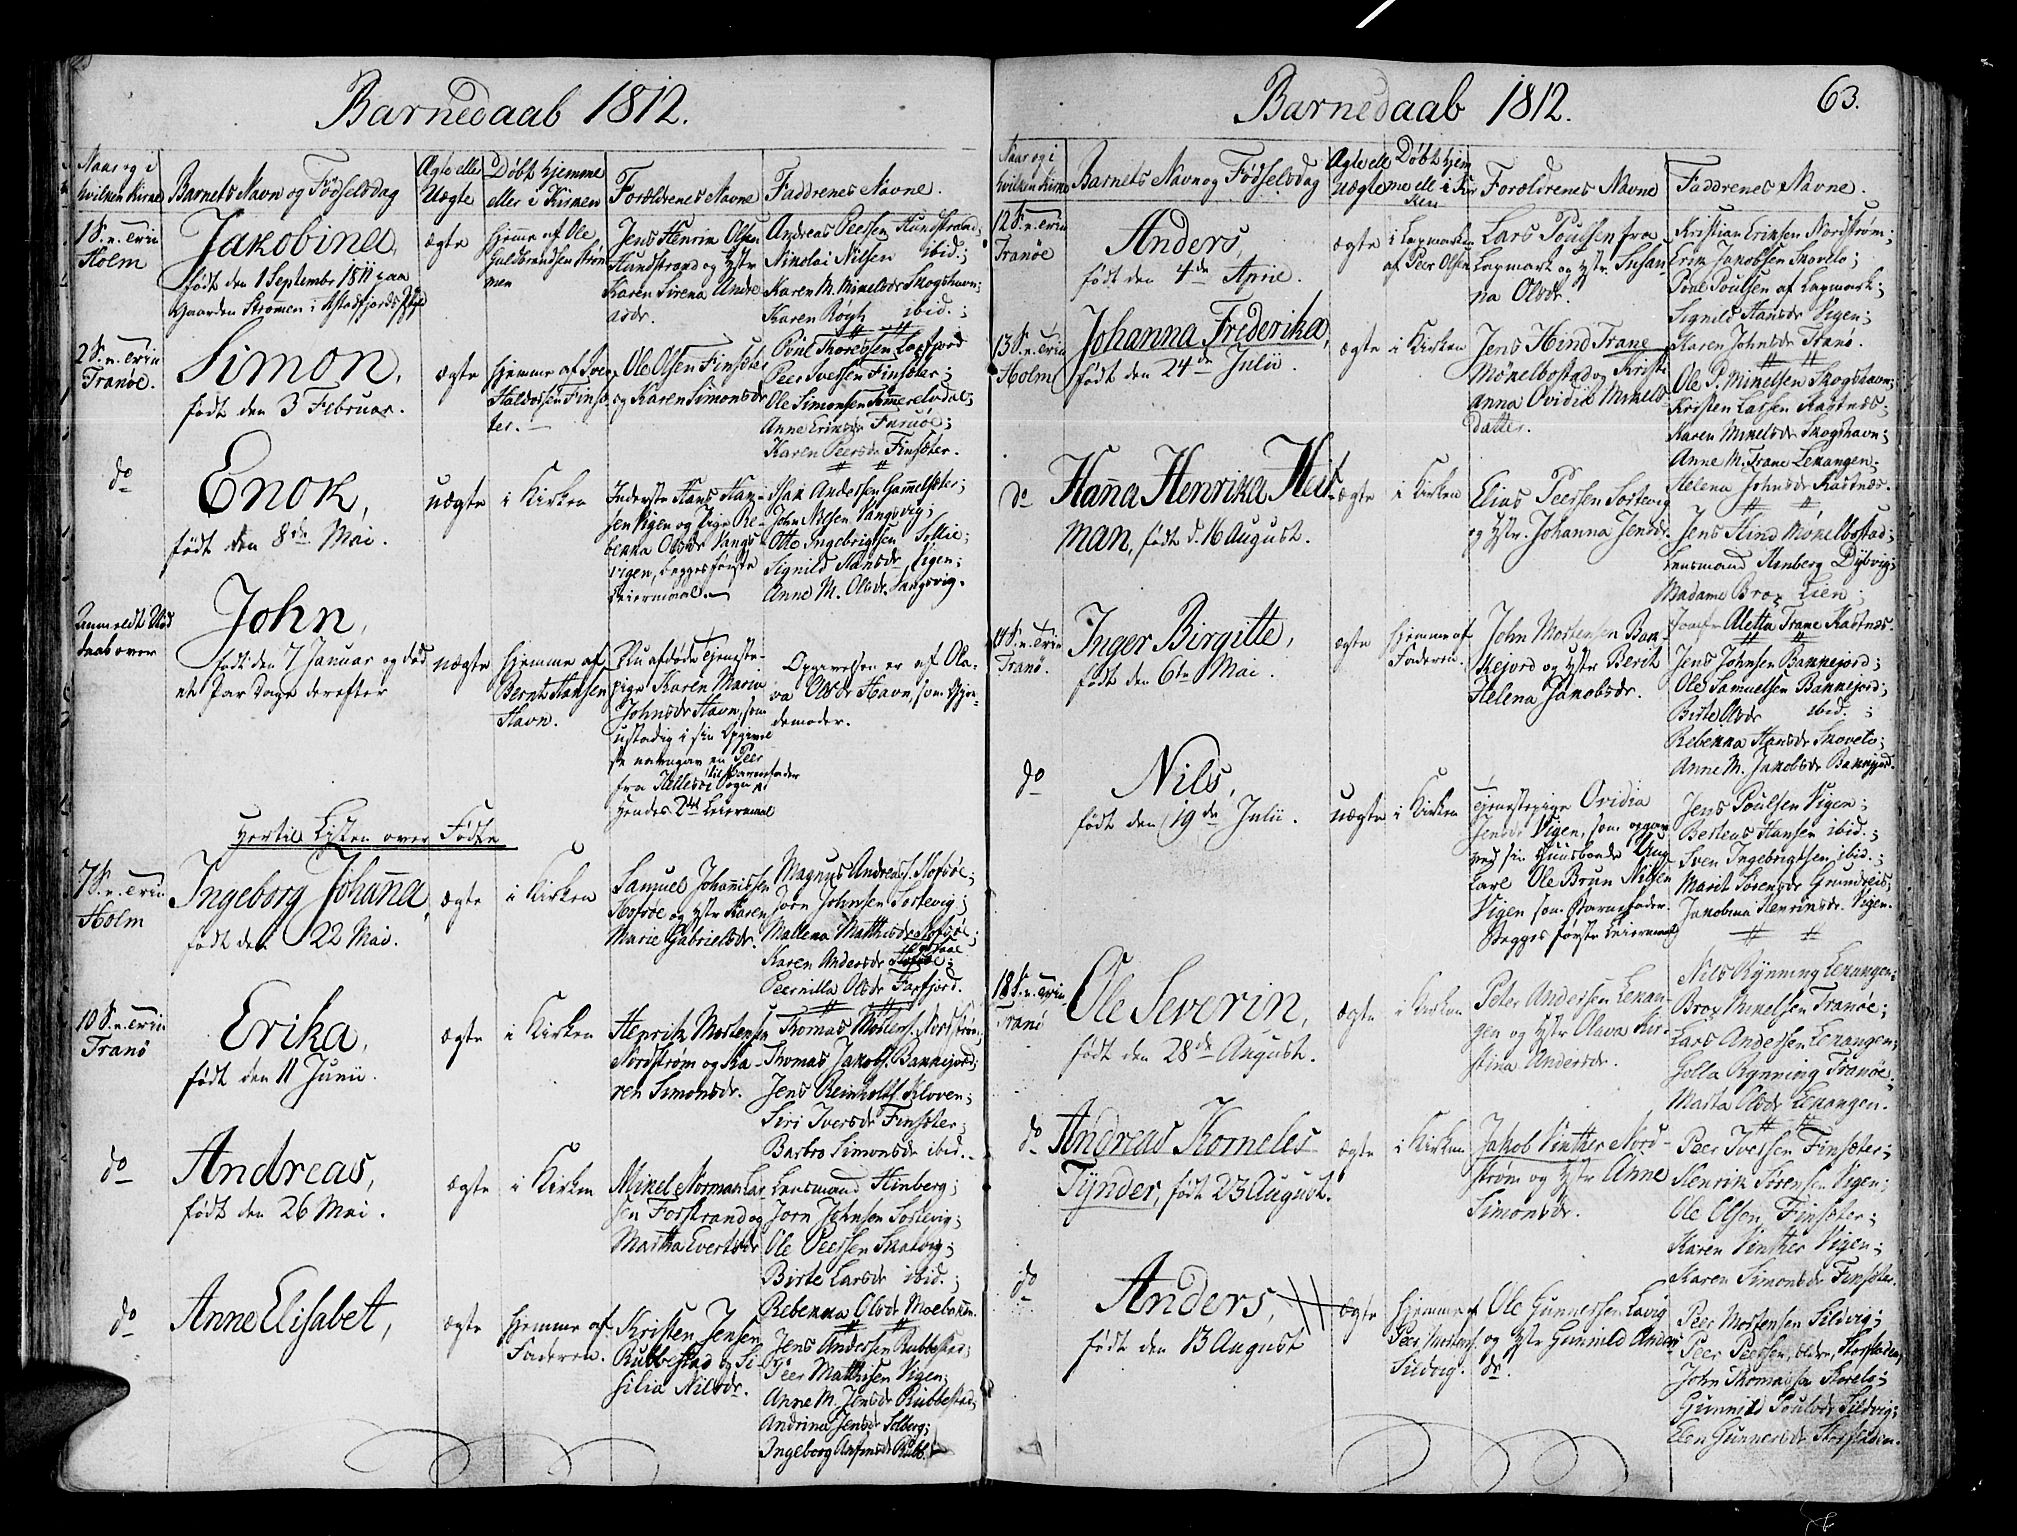 Barnedaab 1812.
Naar og i
hvilken Kirke
Barnets Navn og Födselsdag
Ægte eller
Uægte
Döbt hjemme
eller i Kirken
Forældrenes Navne
Faddrenes Navne.
1 S. n. Trin
Holm
Jakobina,
födt den 1 September 1811 paa
Gaarden Strömen i
ægte
hjeme af Ole
Guldbrandsen Ströм
men
Jens Henrik Olsen
Hundstrand og Hstr
Karen Sirena Andre
asdr.
Andreas Peersen Hundstrand;
Nikolai Nilsen ibid.;
Karen M. Mikelsdr Skogshavn;
Karen Rögh ibid.;
2 S. n. Trin
Tranöe.
Simon,
födt den 3 Februar.
ægte
hjemme af Iver
Haldorsen Finsæ-
ter.
Ole Olsen Finsæter
og Karen Simonsdr
Poul Thoresen Laxfjord
Peer Iversen Finsæter;
Ole Simonsen Tömmerelvdal;
Anne Eriksdr Faruöe;
Karen Peersdr Finsæter.
do
Enok,
födt den 8de Mai.
uægte
i Kirken
Inderste Hans Han-
sen Vigen og Pige Re-
bekka Olsdr Vangs-
vigen, begges förste
Leiermaal.
Isak Andersen Gammelsæter;
John Nilsen Vangsvig;
Otto Ingebrigtsen Sollie;
Signild Hansdr Vigen;
Anne M. Olsdr Vangsvig.
Anmeldt Nöd
daab over
John,
födt den 7 Januar og död
et Par Dage derefter
uægte
hjemme af
Bernt Hansen
Havn.
Nu afdöde Tjeneste-
pige Karen Maria
Johnsdr Havn, som
ustadig i sin Opgivel
se navngav en Peer
fra Hellesöe Sogn til Barnefader
Hendes 2det Leiermaal
Opgivelsen er af Ola-
va Olsdr Havn, som Gjor-
demoder.
Hertil Listen over Födte
7 S. n. Trin
Holm
Ingeborg Johanna,
födt den 22 Mai.
ægte
i Kirken
Samuel Johannissen
Hofsöe og Hstr Karen
Marie Gabrielsdr.
Magnus Andreas. Hofsöe;
Jorn Johnsen Sortevig;
Mallena Matthisdr Hofsöe;
Karen Andersdr
Peernilla Olsdr Faxfjord.
10 S. n. Trin
Tranö
Erika,
födt den 11 Junii.
ægte
i Kirken
Henrik Mortensen
Nordström og Ka-
ren Simonsdr.
Thomas Mortens. Nordström;
Thomas Jakobs. Bakkejord;
Jens Reinholts. Kloven;
Siri Iversdr Finsæter;
Barbro Simonsdr ibid.
do
Andreas,
födt den 26 Mai.
ægte
i Kirken
Mikel Norman Lar
sen Forstrand og
Martha Evertsdr
Lensmand Hinberg;
Jorn Johnsen Sortevig;
Ole Peersen Skatvig;
Birte Larsdr ibid.;
Rebekka Olsdr Moebakken.
do
Anne Elisabet,
ægte
hjemme af
Faderen.
Kristen Jensen
Rubbestad og Si-
silia Nilsdr.
Jens Andersen Rubbestad;
Peer Matthisen Vigen;
Anne M. Jensdr Rubbestad;
Andrina Jensdr Solberg;
Ingeborg Anfinsdr Rubb.
Barnedaab 1812.
63.
Naar og i
hvilken Kirke
Barnets Navn og Födselsdag
Ægte ell
Uægte
Döbt hjem
me ell i Kir
ken
Forældrenes Navne
Faddrenes Navne.
12 S. n. Trin
Tranöe
Anders,
födt den 4de April.
ægte
i Lapmarken
af Peer Olsen
Lars Poulsen fra
Lapmark og Hstr. Susan
na Olsdr.
Kristian Eriksen Nordström;
Erik Jakobsen Skovelv;
Poul Poulsen af Lapmark;
Signild Hansdr Vigen;
Karen Johnsdr Tranö.
13 S. n. Trin
Holm
Johanna Frederika,
födt den 24de Julii.
ægte
i Kirken
Jens Hind Trane
Möкelbostad og Kristi
anna Ovidia Mikels
datter.
Ole P. Mikelsen Skogshavn;
Kristen Larsen Kastnæs;
Karen Mikelsdr Skogshavn;
Anne M. Trane Lekangen;
Helena Johnsdr Kastnæs.
do
Hanna Henrika Heit-
man, födt d. 16 August.
ægte
i Kirken
Elias Peersen Sortevig
og Hstr. Johanna Jensdr.
Jens Hind Möкelbostad;
Lensmand Hinberg Dybvig;
Madame Brox Lien;
Jomfr. Aletta Trane Kastnæs.
14 S. n. Trin
Tranö.
Inger Birgitte,
födt den 6te Mai.
ægte
hjemme af
Faderen.
John Mortensen Bak-
kejord og Hstr Berit
Helena Jakobsdr.
Jens Johnsen Bakkejord;
Ole Samuelsen Bakkejord;
Birte Olsdr ibid.;
Rebekka Hansdr Skovelv;
Anne M. Jakobsdr Bakkejord.
do
Nils,
födt den 19de Julii.
uægte
i Kirken
Tjenestepige Ovidia
Jensdr Vigen, som opgav
ved sin Huusbonde Ung
karl Ole Brun Nilsen
Vigen som Barnefader.
Begges förste Leiermaal
Jens Poulsen Vigen;
Berteus Hansen ibid.;
Sven Ingebrigtsen ibid.;
Marit Sörensdr Grundreis;
Jakobina Henriksdr. Vigen.
18 S. n. Trin
Tranö
Ole Severin,
födt den 28de August.
ægte
i Kirken
Peter Andersen Lekan-
gen og Hstr Olava Kir-
stina Andersdr.
Nils Rynning Lekangen;
Brox Mikelsen Tranöe;
Lars Andersen Lekangen;
Golla Rynning Tranöe;
Marta Olsdr Lekangen.
do
Andreas Korneles
Tynder, födt 23 August.
ægte
i Kirken
Jakob Vinther Nord-
ström og Hstr Anne
Simonsdr.
Peer Iversen Finsæter;
Henrik Sörensen Vigen;
Ole Olsen Finsæter;
Karen Vinther Vigen;
Karen Simonsdr Finsæter.
do
Anders,
födt den 13 August
ægte
hjemme af
Peer Mortens.
Sildvig.
Ole Gunnersen Lavig
og Hstr Gunnild Anders
dr.
Peer Mortensen Sildvig;
Peer Peersen, ældre, Storstaden;
John Thomassen Storelv;
Gunnild Poulsdr Sildvig;
Elen Gunnersdr Storstaden.